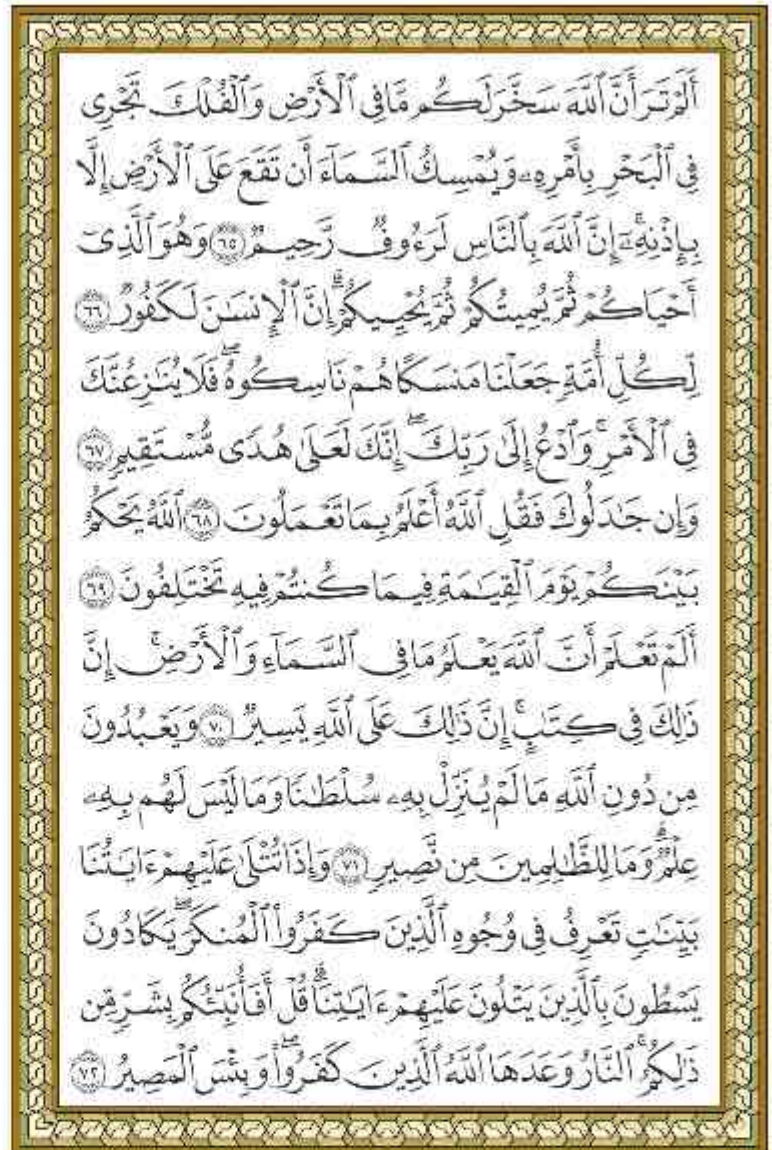 أَلَمْ تَرَ أَنَّ ٱللَّهَ سَخَّرَ لَكُم مَّا فِى ٱلْأَرْضِ وَٱلْفُلْكَ تَجْرِى
فِى ٱلْبَحْرِ بِأَمْرِهِۦ وَيُمْسِكُ ٱلسَّمَآءَ أَن تَقَعَ عَلَى ٱلْأَرْضِ إِلَّا
بِإِذْنِهِۦٓ ۗ إِنَّ ٱللَّهَ بِٱلنَّاسِ لَرَءُوفٌ رَّحِيمٌ ٦٥ وَهُوَ ٱلَّذِىٓ
أَحْيَاكُمْ ثُمَّ يُمِيتُكُمْ ثُمَّ يُحْيِيكُمْ ۗ إِنَّ ٱلْإِنسَٰنَ لَكَفُورٌ ٦٦
لِّكُلِّ أُمَّةٍ جَعَلْنَا مَنسَكًا هُمْ نَاسِكُوهُ ۖ فَلَا يُنَٰزِعُنَّكَ
فِى ٱلْأَمْرِ ۚ وَٱدْعُ إِلَىٰ رَبِّكَ ۖ إِنَّكَ لَعَلَىٰ هُدًى مُّسْتَقِيمٍ ٦٧
وَإِن جَٰدَلُوكَ فَقُلِ ٱللَّهُ أَعْلَمُ بِمَا تَعْمَلُونَ ٦٨ ٱللَّهُ يَحْكُمُ
بَيْنَكُمْ يَوْمَ ٱلْقِيَٰمَةِ فِيمَا كُنتُمْ فِيهِ تَخْتَلِفُونَ ٦٩
أَلَمْ تَعْلَمْ أَنَّ ٱللَّهَ يَعْلَمُ مَا فِى ٱلسَّمَآءِ وَٱلْأَرْضِ ۗ إِنَّ
ذَٰلِكَ فِى كِتَٰبٍ ۚ إِنَّ ذَٰلِكَ عَلَى ٱللَّهِ يَسِيرٌ ٧٠ وَيَعْبُدُونَ
مِن دُونِ ٱللَّهِ مَا لَمْ يُنَزِّلْ بِهِۦ سُلْطَٰنًا وَمَا لَيْسَ لَهُم بِهِۦ
عِلْمٌ ۗ وَمَا لِلظَّٰلِمِينَ مِن نَّصِيرٍ ٧١ وَإِذَا تُتْلَىٰ عَلَيْهِمْ ءَايَٰتُنَا
بَيِّنَٰتٍ تَعْرِفُ فِى وُجُوهِ ٱلَّذِينَ كَفَرُوا۟ ٱلْمُنكَرَ ۖ يَكَادُونَ
يَسْطُونَ بِٱلَّذِينَ يَتْلُونَ عَلَيْهِمْ ءَايَٰتِنَا ۗ قُلْ أَفَأُنَبِّئُكُم بِشَرٍّ مِّن
ذَٰلِكُمُ ۗ ٱلنَّارُ وَعَدَهَا ٱللَّهُ ٱلَّذِينَ كَفَرُوا۟ ۖ وَبِئْسَ ٱلْمَصِيرُ ٧٢